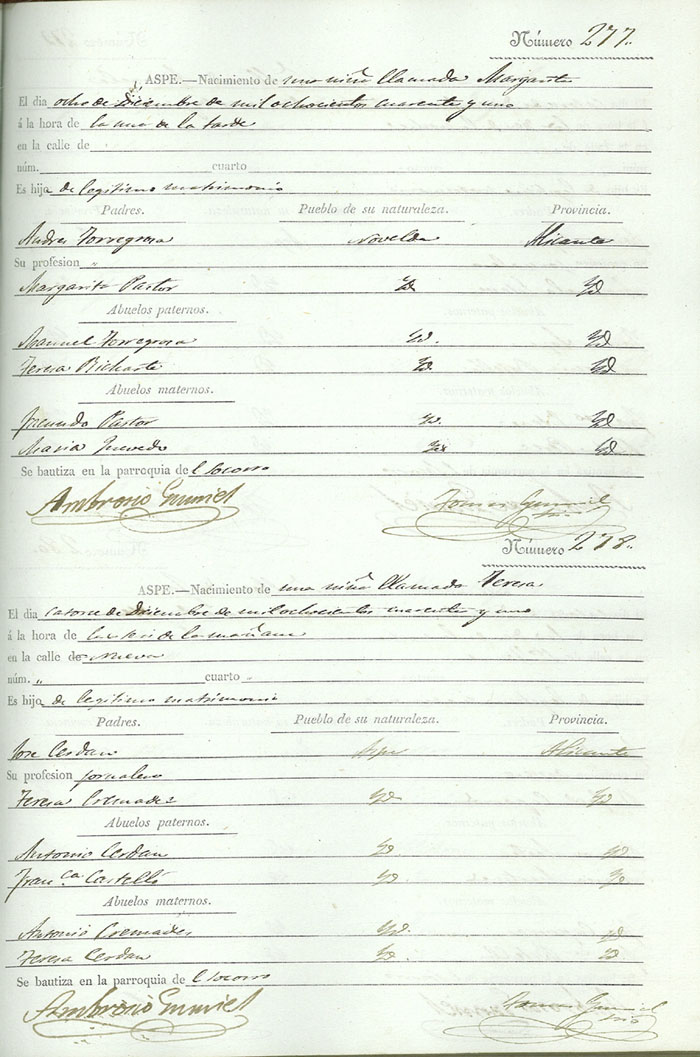 Número 277.
ASPE.—Nacimiento de una niña llamada Margarita
El dia ocho de Diciembre de mil ochocientos cuarenta y uno
á la hora de la una de la tarde
en la calle de
núm. cuarto
Es hija de legitimo matrimonio
Padres. Pueblo de su naturaleza. Provincia.
Andres Torregrosa Novelda Alicante
Su profesion "
Margarita Pastor Yd Yd
Abuelos paternos.
Manuel Torregrosa Yd. Yd
Teresa Richarte Yd. Yd
Abuelos maternos.
Facundo Pastor Yd. Yd
Maria Yd Yd
Se bautiza en la parroquia del Socorro
Ambrosio Gumiel Tomas Gumiel
Número 278.
ASPE.—Nacimiento de una niña llamada Teresa
El dia catorce de Diciembre de mil ochocientos cuarenta y uno
á la hora de las seis de la mañana
en la calle de Nueva
núm. " cuarto "
Es hija de legitimo matrimonio
Padres. Pueblo de su naturaleza. Provincia.
Jose Cerdan Aspe Alicante
Su profesion jornalero
Teresa Cremades Yd Yd
Abuelos paternos.
Antonio Cerdan Yd. Yd
Fran.ca Castelló Yd. Yd
Abuelos maternos.
Antonio Cremades Yd. Yd
Teresa Cerdan Yd. Yd
Se bautiza en la parroquia del Socorro
Ambrosio Gumiel Tomas Gumiel